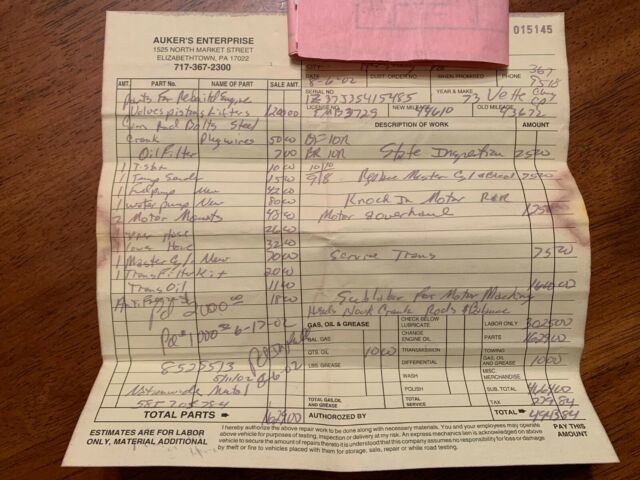 AUKER'S ENTERPRISE
1525 NORTH MARKET STREET
ELIZABETHTOWN, PA 17022
717-367-2300
015145
8-6-02
CUST. ORDER NO.
WHEN PROMISED
PHONE
367
SERIAL NO.
YEAR & MAKE
73 Vette
LICENSE NO.
NEW MILEAGE
49610
OLD MILEAGE
43672
AMT. PART No. NAME OF PART SALE AMT. DESCRIPTION OF WORK AMOUNT
Parts For Rebuild Engine
Valves pistons Lifters 1200 00
Crank Plugwires 50 00
Oil Filter 7 00
BR 10R State Inspection 25 00
10 00
1 Temp Sender 15 00
Replace Master Cyl 75 00
1 fuel pump New 42 00
1 water pump New 80 00
Knock In Motor R&R
2 Motor Mounts
Motor overhaul
Hose 26 00
1 Lower Hose 32 00
1 Master Cyl New 70 00
Service Trans 75 00
1 Trans Filter Kit 20 00
Trans Oil 11 00
Anti Freeze 18 00
Sublabor For Motor Machine
Heads Block Crank Rods & Balance
Pd 2000 00
Pd 1000 00 6-17-02
8-6-02
Nationwide
GAS, OIL & GREASE
GAL. GAS
QTS. OIL 10 00
LBS. GREASE
TOTAL GAS, OIL AND GREASE
CHECK BELOW
LUBRICATE
CHANGE ENGINE OIL
TRANSMISSION
DIFFERENTIAL
WASH
POLISH
TOTAL SERVICE
LABOR ONLY 3025 00
PARTS 1629 00
TOWING
GAS, OIL AND GREASE 10 00
MISC. MERCHANDISE
SUB. TOTAL 4664 00
TAX 279 84
TOTAL PARTS 1629 00
AUTHORIZED BY
TOTAL 4943 84
ESTIMATES ARE FOR LABOR ONLY, MATERIAL ADDITIONAL
I hereby authorize the above repair work to be done along with necessary materials. You and your employees may operate
above vehicle for purposes of testing, inspection or delivery at my risk. An express mechanics lien is acknowledged on above
vehicle to secure the amount of repairs thereto. It is understood that this company assumes no responsibility for loss or damage
by theft or fire to vehicles placed with them for storage, sale, repair or while road testing.
PAY THIS AMOUNT